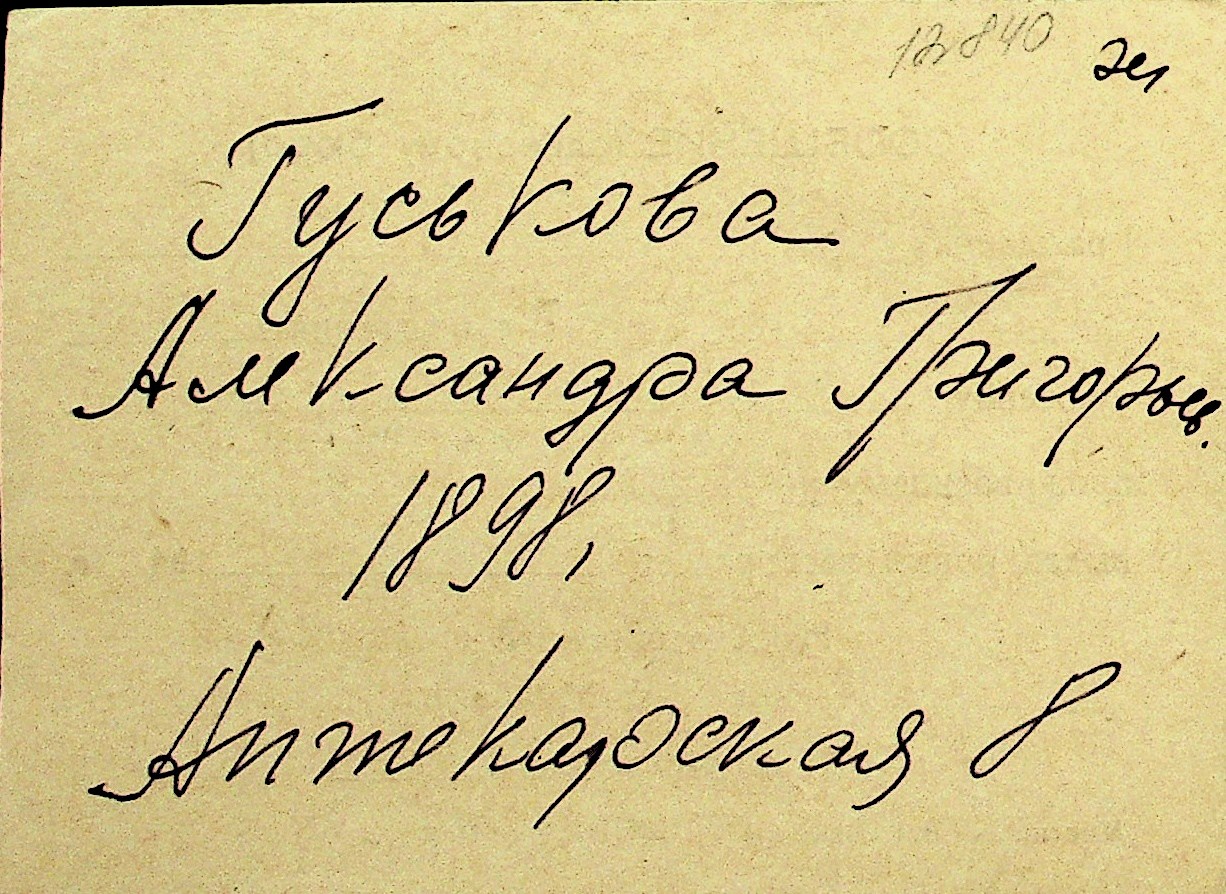 12840
Гуськова
Александра Григорьев.
1898,
Аптекарская 8